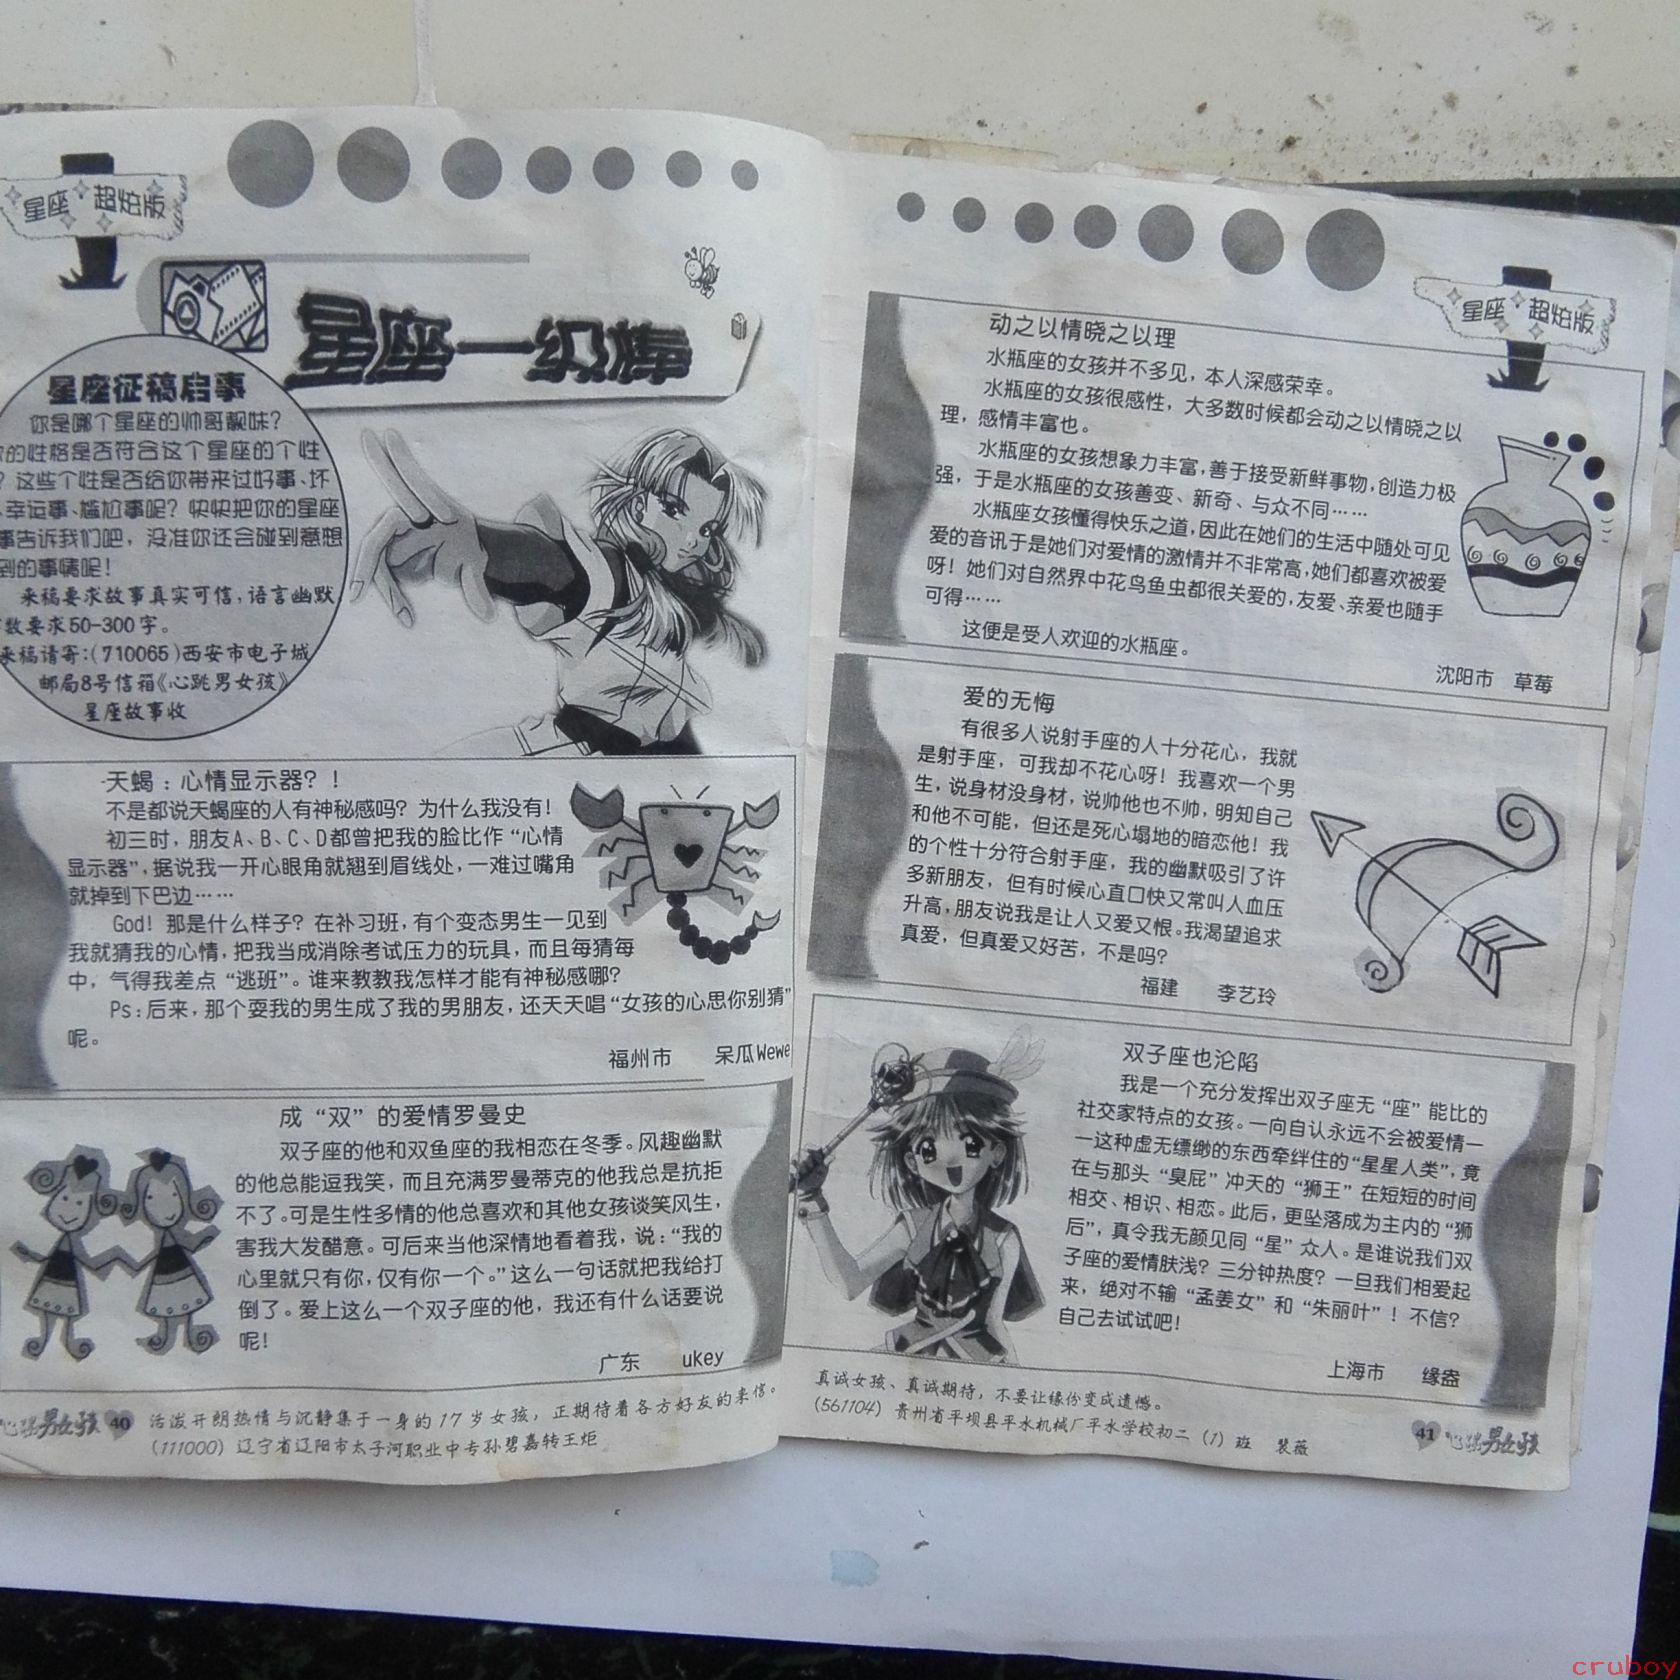 星座 超炫版
星座一级棒
星座征稿启事
你是哪个星座的帅哥靓妹?
的性格是否符合这个星座的个性
?这些个性是否给你带来过好事、坏
、幸运事、尴尬事呢?快快把你的星座
事告诉我们吧,没准你还会碰到意想
到的事情呢!
来稿要求故事真实可信,语言幽默
数要求50-300字。
来稿请寄:(710065)西安市电子城
邮局8号信箱《心跳男女孩》
星座故事收
天蝎:心情显示器?!
不是都说天蝎座的人有神秘感吗?为什么我没有!
初三时,朋友A、B、C、D都曾把我的脸比作“心情
显示器”,据说我一开心眼角就翘到眉线处,一难过嘴角
就掉到下巴边……
God!那是什么样子?在补习班,有个变态男生一见到
我就猜我的心情,把我当成消除考试压力的玩具,而且每猜每
中,气得我差点“逃班”。谁来教教我怎样才能有神秘感哪?
Ps:后来,那个耍我的男生成了我的男朋友,还天天唱“女孩的心思你别猜”
呢。
福州市 呆瓜Wewe
成“双”的爱情罗曼史
双子座的他和双鱼座的我相恋在冬季。风趣幽默
的他总能逗我笑,而且充满罗曼蒂克的他我总是抗拒
不了。可是生性多情的他总喜欢和其他女孩谈笑风生,
害我大发醋意。可后来当他深情地看着我,说:“我的
心里就只有你,仅有你一个。”这么一句话就把我给打
倒了。爱上这么一个双子座的他,我还有什么话要说
呢!
广东 ukey
心跳男女孩 40 活泼开朗热情与沉静集于一身的17岁女孩,正期待着各方好友的来信。
(111000)辽宁省辽阳市太子河职业中专孙碧嘉转王炬
星座 超炫版
动之以情晓之以理
水瓶座的女孩并不多见,本人深感荣幸。
水瓶座的女孩很感性,大多数时候都会动之以情晓之以
理,感情丰富也。
水瓶座的女孩想象力丰富,善于接受新鲜事物,创造力极
强,于是水瓶座的女孩善变、新奇、与众不同……
水瓶座女孩懂得快乐之道,因此在她们的生活中随处可见
爱的音讯于是她们对爱情的激情并不非常高,她们都喜欢被爱
呀!她们对自然界中花鸟鱼虫都很关爱的,友爱、亲爱也随手
可得……
这便是受人欢迎的水瓶座。
沈阳市 草莓
爱的无悔
有很多人说射手座的人十分花心,我就
是射手座,可我却不花心呀!我喜欢一个男
生,说身材没身材,说帅他也不帅,明知自己
和他不可能,但还是死心塌地的暗恋他!我
的个性十分符合射手座,我的幽默吸引了许
多新朋友,但有时候心直口快又常叫人血压
升高,朋友说我是让人又爱又恨。我渴望追求
真爱,但真爱又好苦,不是吗?
福建 李艺玲
双子座也沦陷
我是一个充分发挥出双子座无“座”能比的
社交家特点的女孩。一向自认永远不会被爱情一
一这种虚无缥缈的东西牵绊住的“星星人类”,竟
在与那头“臭屁”冲天的“狮王”在短短的时间
相交、相识、相恋。此后,更坠落成为主内的“狮
后”,真令我无颜见同“星”众人。是谁说我们双
子座的爱情肤浅?三分钟热度?一旦我们相爱起
来,绝对不输“孟姜女”和“朱丽叶”!不信?
自己去试试吧!
上海市 缘盎
真诚女孩、真诚期待,不要让缘份变成遗憾。
(561104)贵州省平坝县平水机械厂平水学校初二(1)班 裴薇
41 心跳男女孩
cruboy